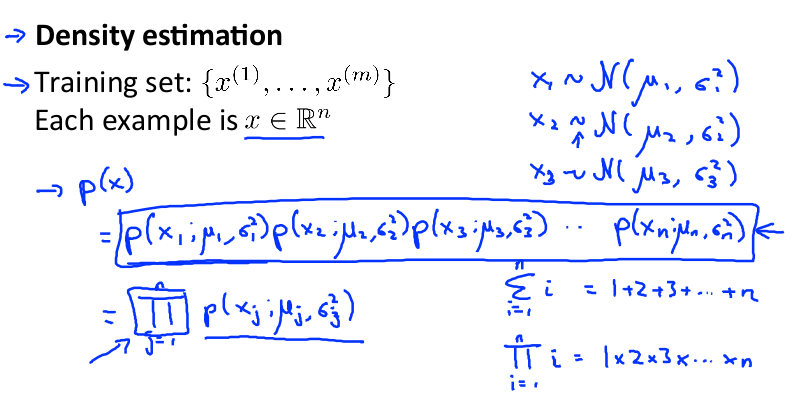 → Density estimation
→ Training set: {x⁽¹⁾, . . . , x⁽ᵐ⁾}
Each example is x ∈ ℝⁿ
x₁ ~ N(μ₁, σ₁²)
x₂ ~ N(μ₂, σ₂²)
↑
x₃ ~ N(μ₃, σ₃²)
→ p(x)
= p(x₁; μ₁, σ₁²) p(x₂; μ₂, σ₂²) p(x₃; μ₃, σ₃²) ·· p(xₙ; μₙ, σₙ²) ←
= ∏ⱼ₌₁ⁿ p(xⱼ; μⱼ, σⱼ²)
∑ᵢ₌₁ⁿ i = 1+2+3+...+n
∏ᵢ₌₁ⁿ i = 1×2×3×...×n